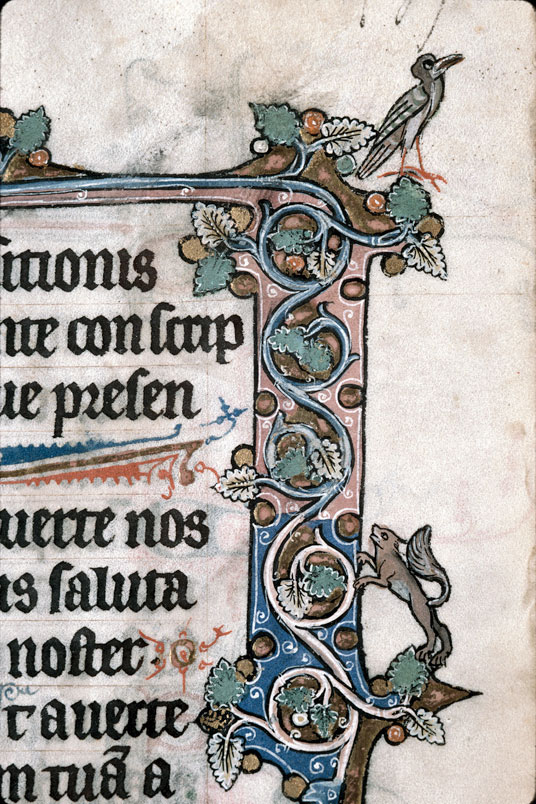 sitionis
nte conscrip
ue presen
uerte nos
us saluta
noster.
t auerte
m tuā a